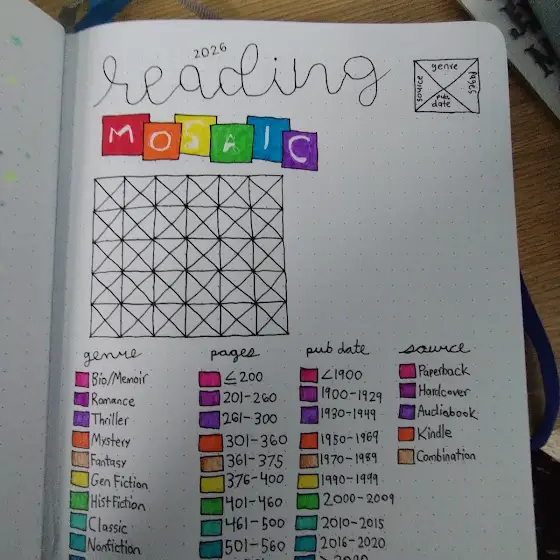 2026
reading
MOSAIC
genre
source
pages
pub date
genre pages pub date source
Bio/Memoir ≤200 <1900 Paperback
Romance 201-260 1900-1929 Hardcover
Thriller 261-300 1930-1949 Audiobook
Mystery 301-360 1950-1969 Kindle
Fantasy 361-375 1970-1989 Combination
Gen Fiction 376-400 1990-1999
Hist Fiction 401-460 2000-2009
Classic 461-500 2010-2015
Nonfiction 501-560 2016-2020
>2020